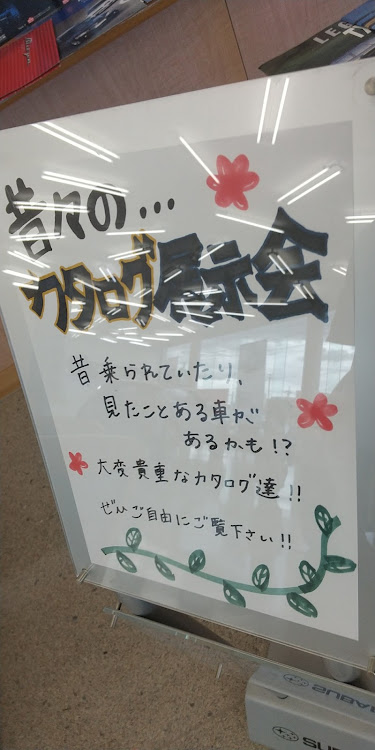 昔々の...
カタログ展示会
昔乗られていたり、
見たことある車が
あるかも!?
大変貴重なカタログ達!!
ぜひご自由にご覧下さい!!
SUBARU